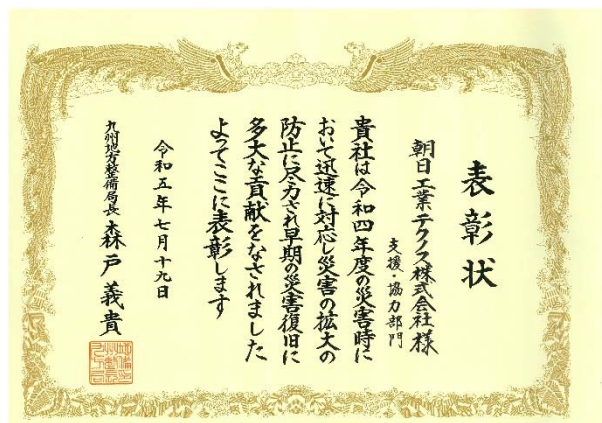 表彰状
朝日工業テクノス株式会社様
支援・協力部門
貴社は令和四年度の災害時に
おいて迅速に対応し災害の拡大の
防止に尽力され早期の災害復旧に
多大な貢献をなされました
よってここに表彰します
令和五年七月十九日
九州地方整備局長 森戸義貴